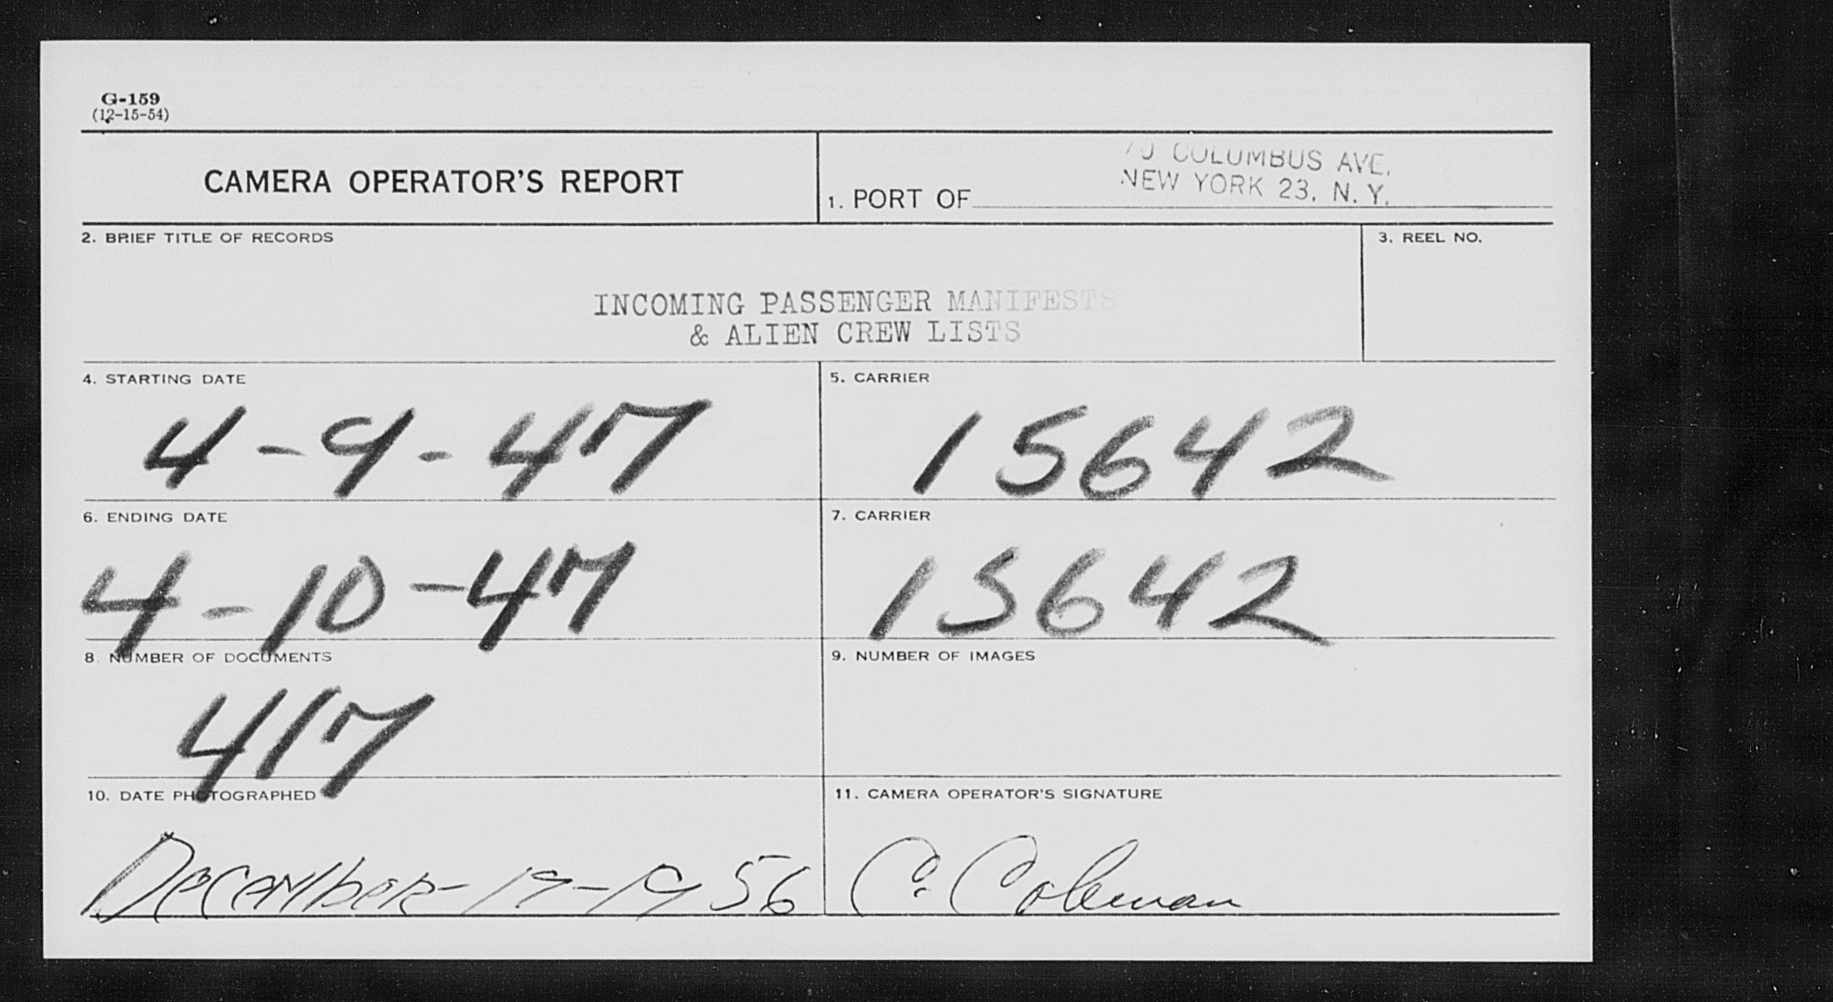 G-159
(12-15-54)
CAMERA OPERATOR'S REPORT
70 COLUMBUS AVE.
NEW YORK 23, N. Y.
1. PORT OF
2. BRIEF TITLE OF RECORDS
3. REEL NO.
INCOMING PASSENGER MANIFESTS
& ALIEN CREW LISTS
4. STARTING DATE
5. CARRIER
4-9-47
15642
6. ENDING DATE
7. CARRIER
4-10-47
15642
8. NUMBER OF DOCUMENTS
9. NUMBER OF IMAGES
417
10. DATE PHOTOGRAPHED
11. CAMERA OPERATOR'S SIGNATURE
DECEMBER-19-1956
C. Coleman